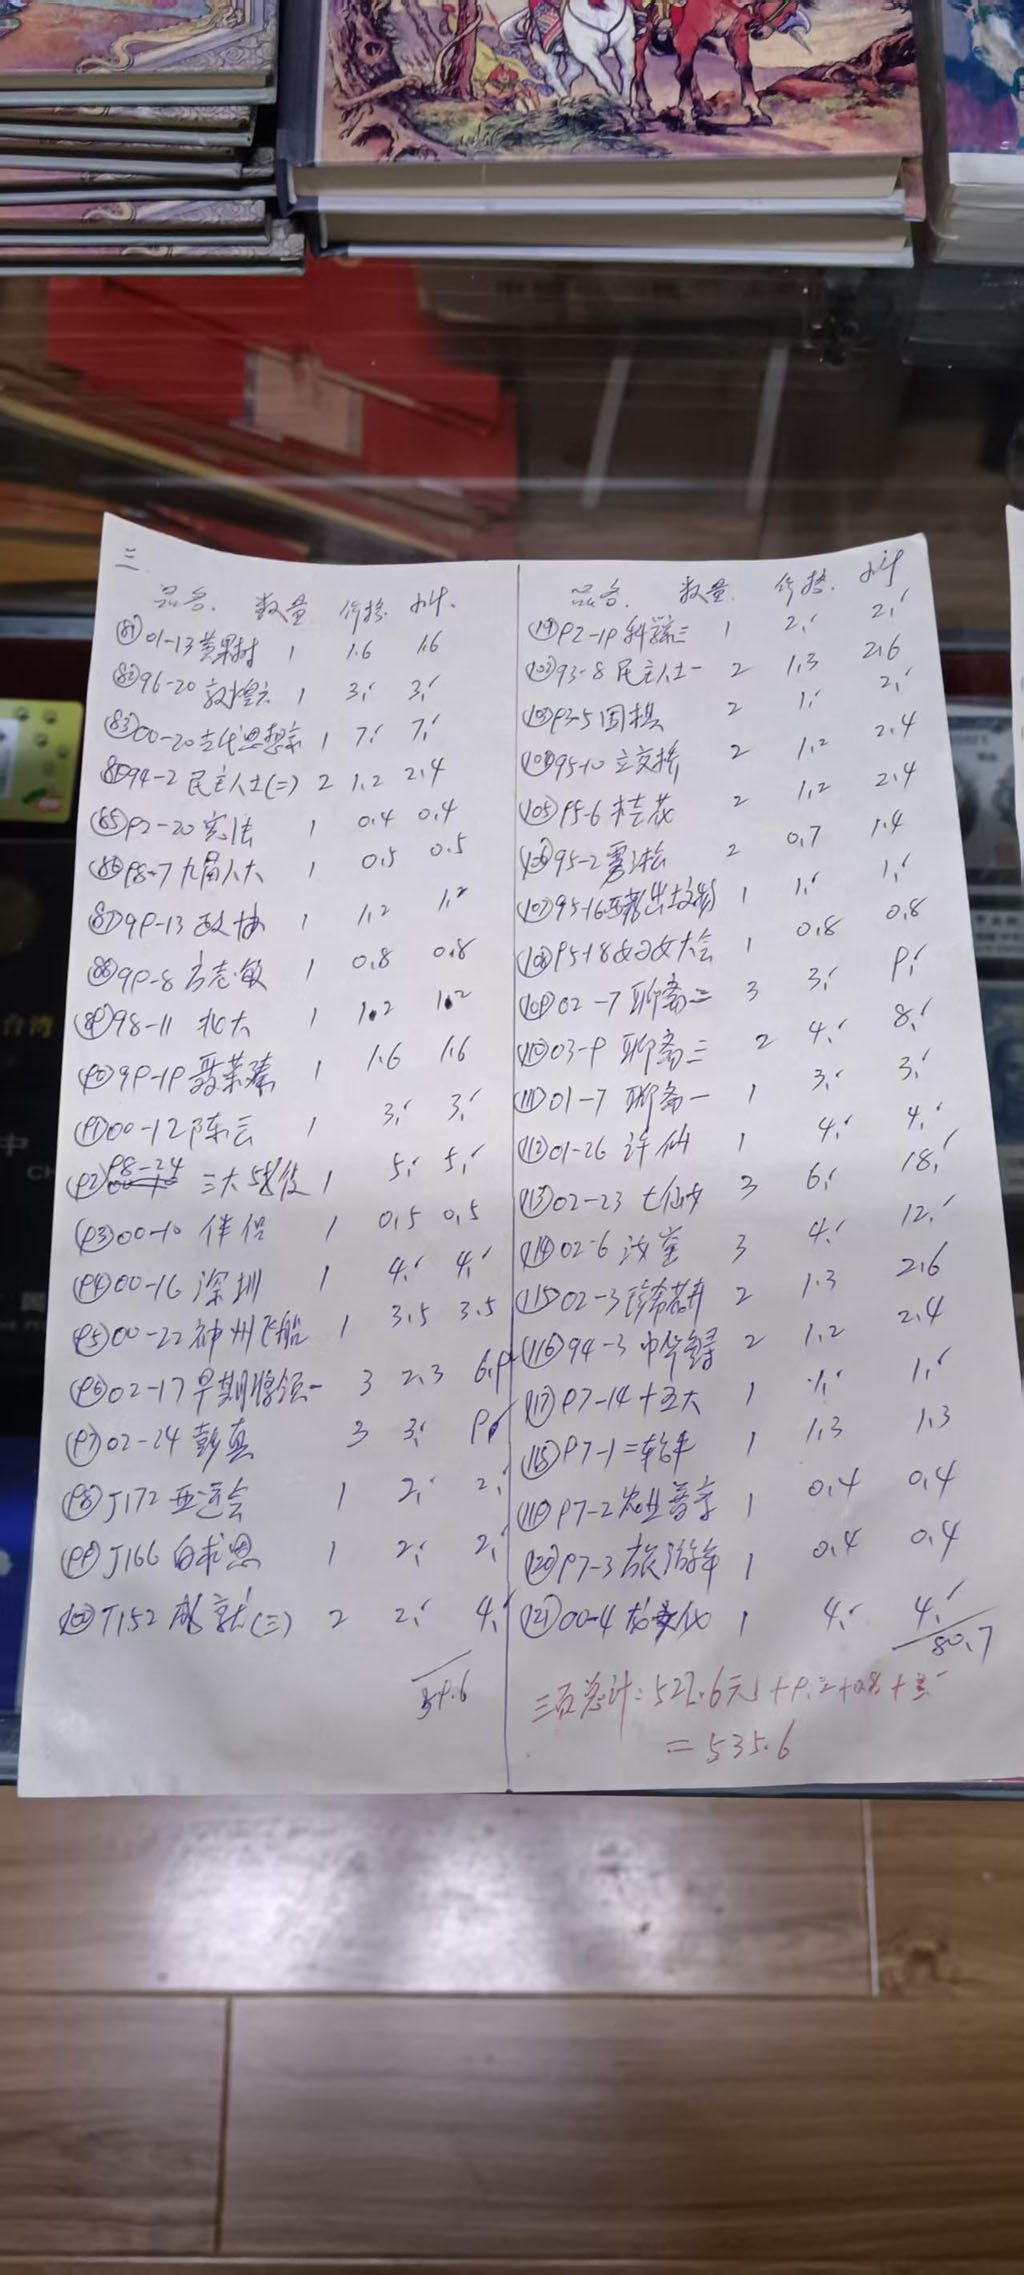 三
品名. 数量 价格. 小计.
81 01-13 黄果树 1 1.6 1.6
82 96-20 敦煌六 1 3. 3.
83 00-20 古代思想家 1 7. 7.
84 94-2 民主人士(二) 2 1.2 2.4
85 92-20 宪法 1 0.4 0.4
86 98-7 九届人大 1 0.5 0.5
87 99-13 政协 1 1.2 1.2
88 99-8 方志敏 1 0.8 0.8
89 98-11 北大 1 1.2 1.2
90 99-19 聂荣臻 1 1.6 1.6
91 00-12 陈云 1 3. 3.
92 98-24 三大战役 1 5. 5.
93 00-10 伴侣 1 0.5 0.5
94 00-16 深圳 1 4. 4.
95 00-22 神州飞船 1 3.5 3.5
96 02-17 早期将领一 3 2.3 6.9
97 02-24 彭真 3 3. 9.
98 J172 亚运会 1 2. 2.
99 J166 白求恩 1 2. 2.
100 T152 成就(三) 2 2. 4.
59.6
品名. 数量. 价格. 小计
92-19 科学家三 1 2. 2.
93-8 民主人士一 2 1.3 2.6
103 93-5 围棋 2 1. 2.
104 95-10 立交桥 2 1.2 2.4
105 95-6 桂花 2 1.2 2.4
106 95-2 雾凇 2 0.7 1.4
107 95-16 出土文物 1 1. 1.
108 95-18 妇女大会 1 0.8 0.8
109 02-7 聊斋二 3 3. 9.
110 03-9 聊斋三 2 4. 8.
111 01-7 聊斋一 1 3. 3.
112 01-26 许仙 1 4. 4.
113 02-23 七仙女 3 6. 18.
114 02-6 汝窑 3 4. 12.
115 02-3 珍稀花卉 2 1.3 2.6
116 94-3 中华鲟 2 1.2 2.4
117 97-14 十五大 1 1. 1.
118 97-1 二轮牛 1 1.3 1.3
119 97-2 农业普查 1 0.4 0.4
120 97-3 旅游年 1 0.4 0.4
121 00-4 龙文化 1 4. 4.
80.7
三页总计: 522.6元 + 9.2 + 0.8 + 3.
= 535.6